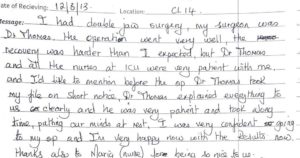 Date of Recieving: 12/8/13. Location: CL14
Message: I had double jaw surgery, my surgeon was
Dr Thomas, the operation went very well, the
recovery was harder than I expected, but Dr Thomas
and all the nurses at ICU were very patient with me,
and I'd like to mention before the op Dr Thomas took
my file on short notice, Dr Thomas explained everything to
us clearly and he was very patient and took along
time, putting our minds at rest, I was very confident going
to my op and I'm very happy now with the results now.
thanks also to (nurse) for being so nice to us.